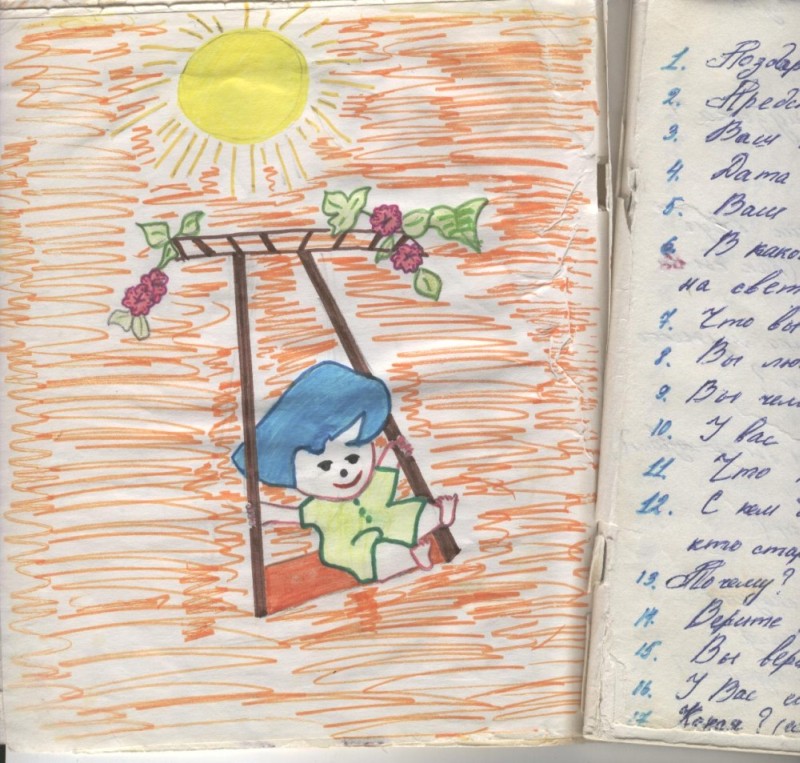 1. Поздра
2. Предс
3. Ваш
4. Дата
5. Ваш
6. В како
на свет
7. Что вы
8. Вы лю
9. Вы чел
10. У вас
11. Что
12. С кем
кто стар
13. Почему?
14. Верите
15. Вы вер
16. У Вас
17. Какая?